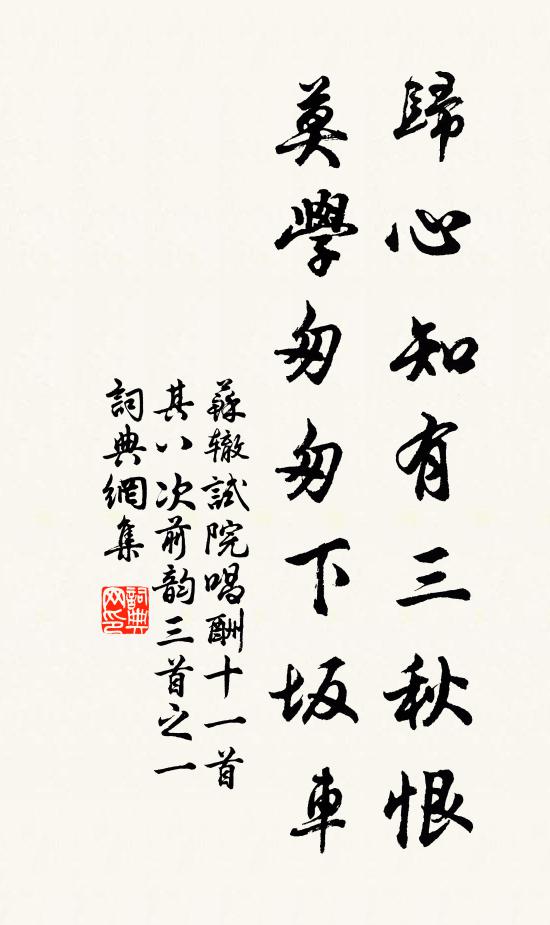 歸心知有三秋恨
莫學匆匆下坂車
蘇辙試院唱酬十一首
其八次前韵三首之一
詞典網集
詞典网印